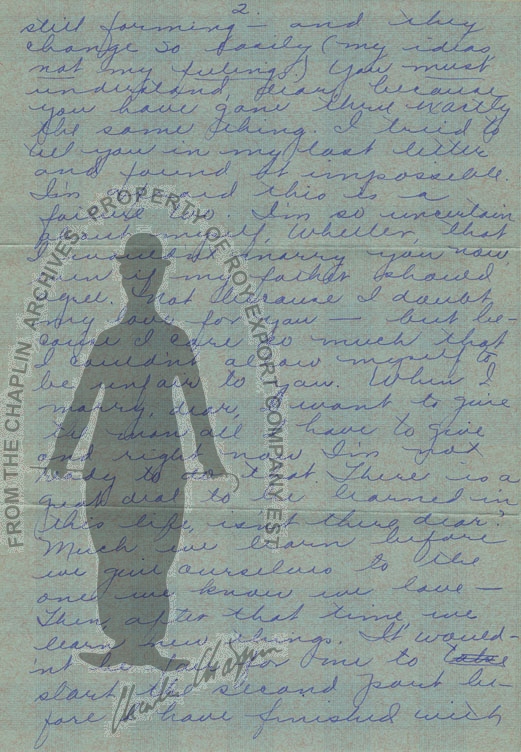 2.
still forming – and they
change so easily (my ideas
not my feelings) You must
understand dear because
you have gone thru exactly
the same thing. I tried to
tell you in my last letter
and found it impossible.
I'm afraid this is a
failure too. I'm so uncertain
about myself, Wheller, that
I wouldn't marry you now
even if my father should
agree. Not because I doubt
my love for you — but be-
cause I care so much that
I couldn't allow myself to
be unfair to you. When I
marry, dear, I want to give
the man all I have to give
and right now I'm not
ready to do that. There is a
great deal to be learned in
this life isn't there dear?
Much we learn before
we give ourselves to the
one we know we love —
Then after that time we
learn new things. It would-
n't be fair for me to
start the second part be-
fore I have finished with
FROM THE CHAPLIN ARCHIVES, PROPERTY OF ROY EXPORT COMPANY EST.
Charlie Chaplin